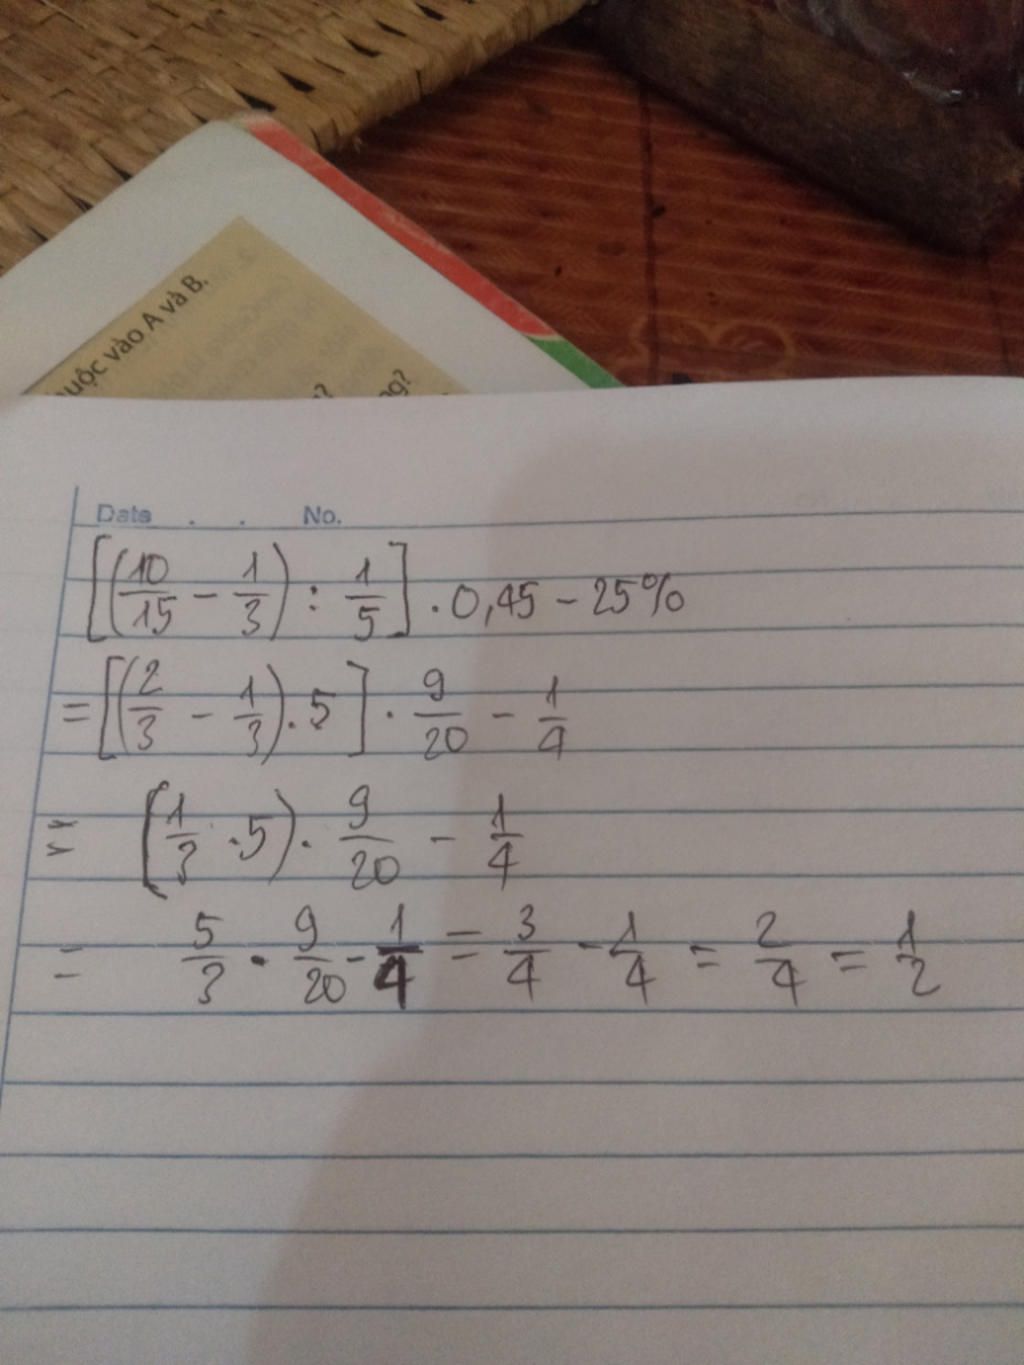 uộc vào A và B.
?
ng?
Date . . No.
[(10/15 - 1/3) : 1/5] . 0,45 - 25%
= [(2/3 - 1/3) . 5] . 9/20 - 1/4
= (1/3 . 5) . 9/20 - 1/4
= 5/3 . 9/20 - 1/4 = 3/4 - 1/4 = 2/4 = 1/2